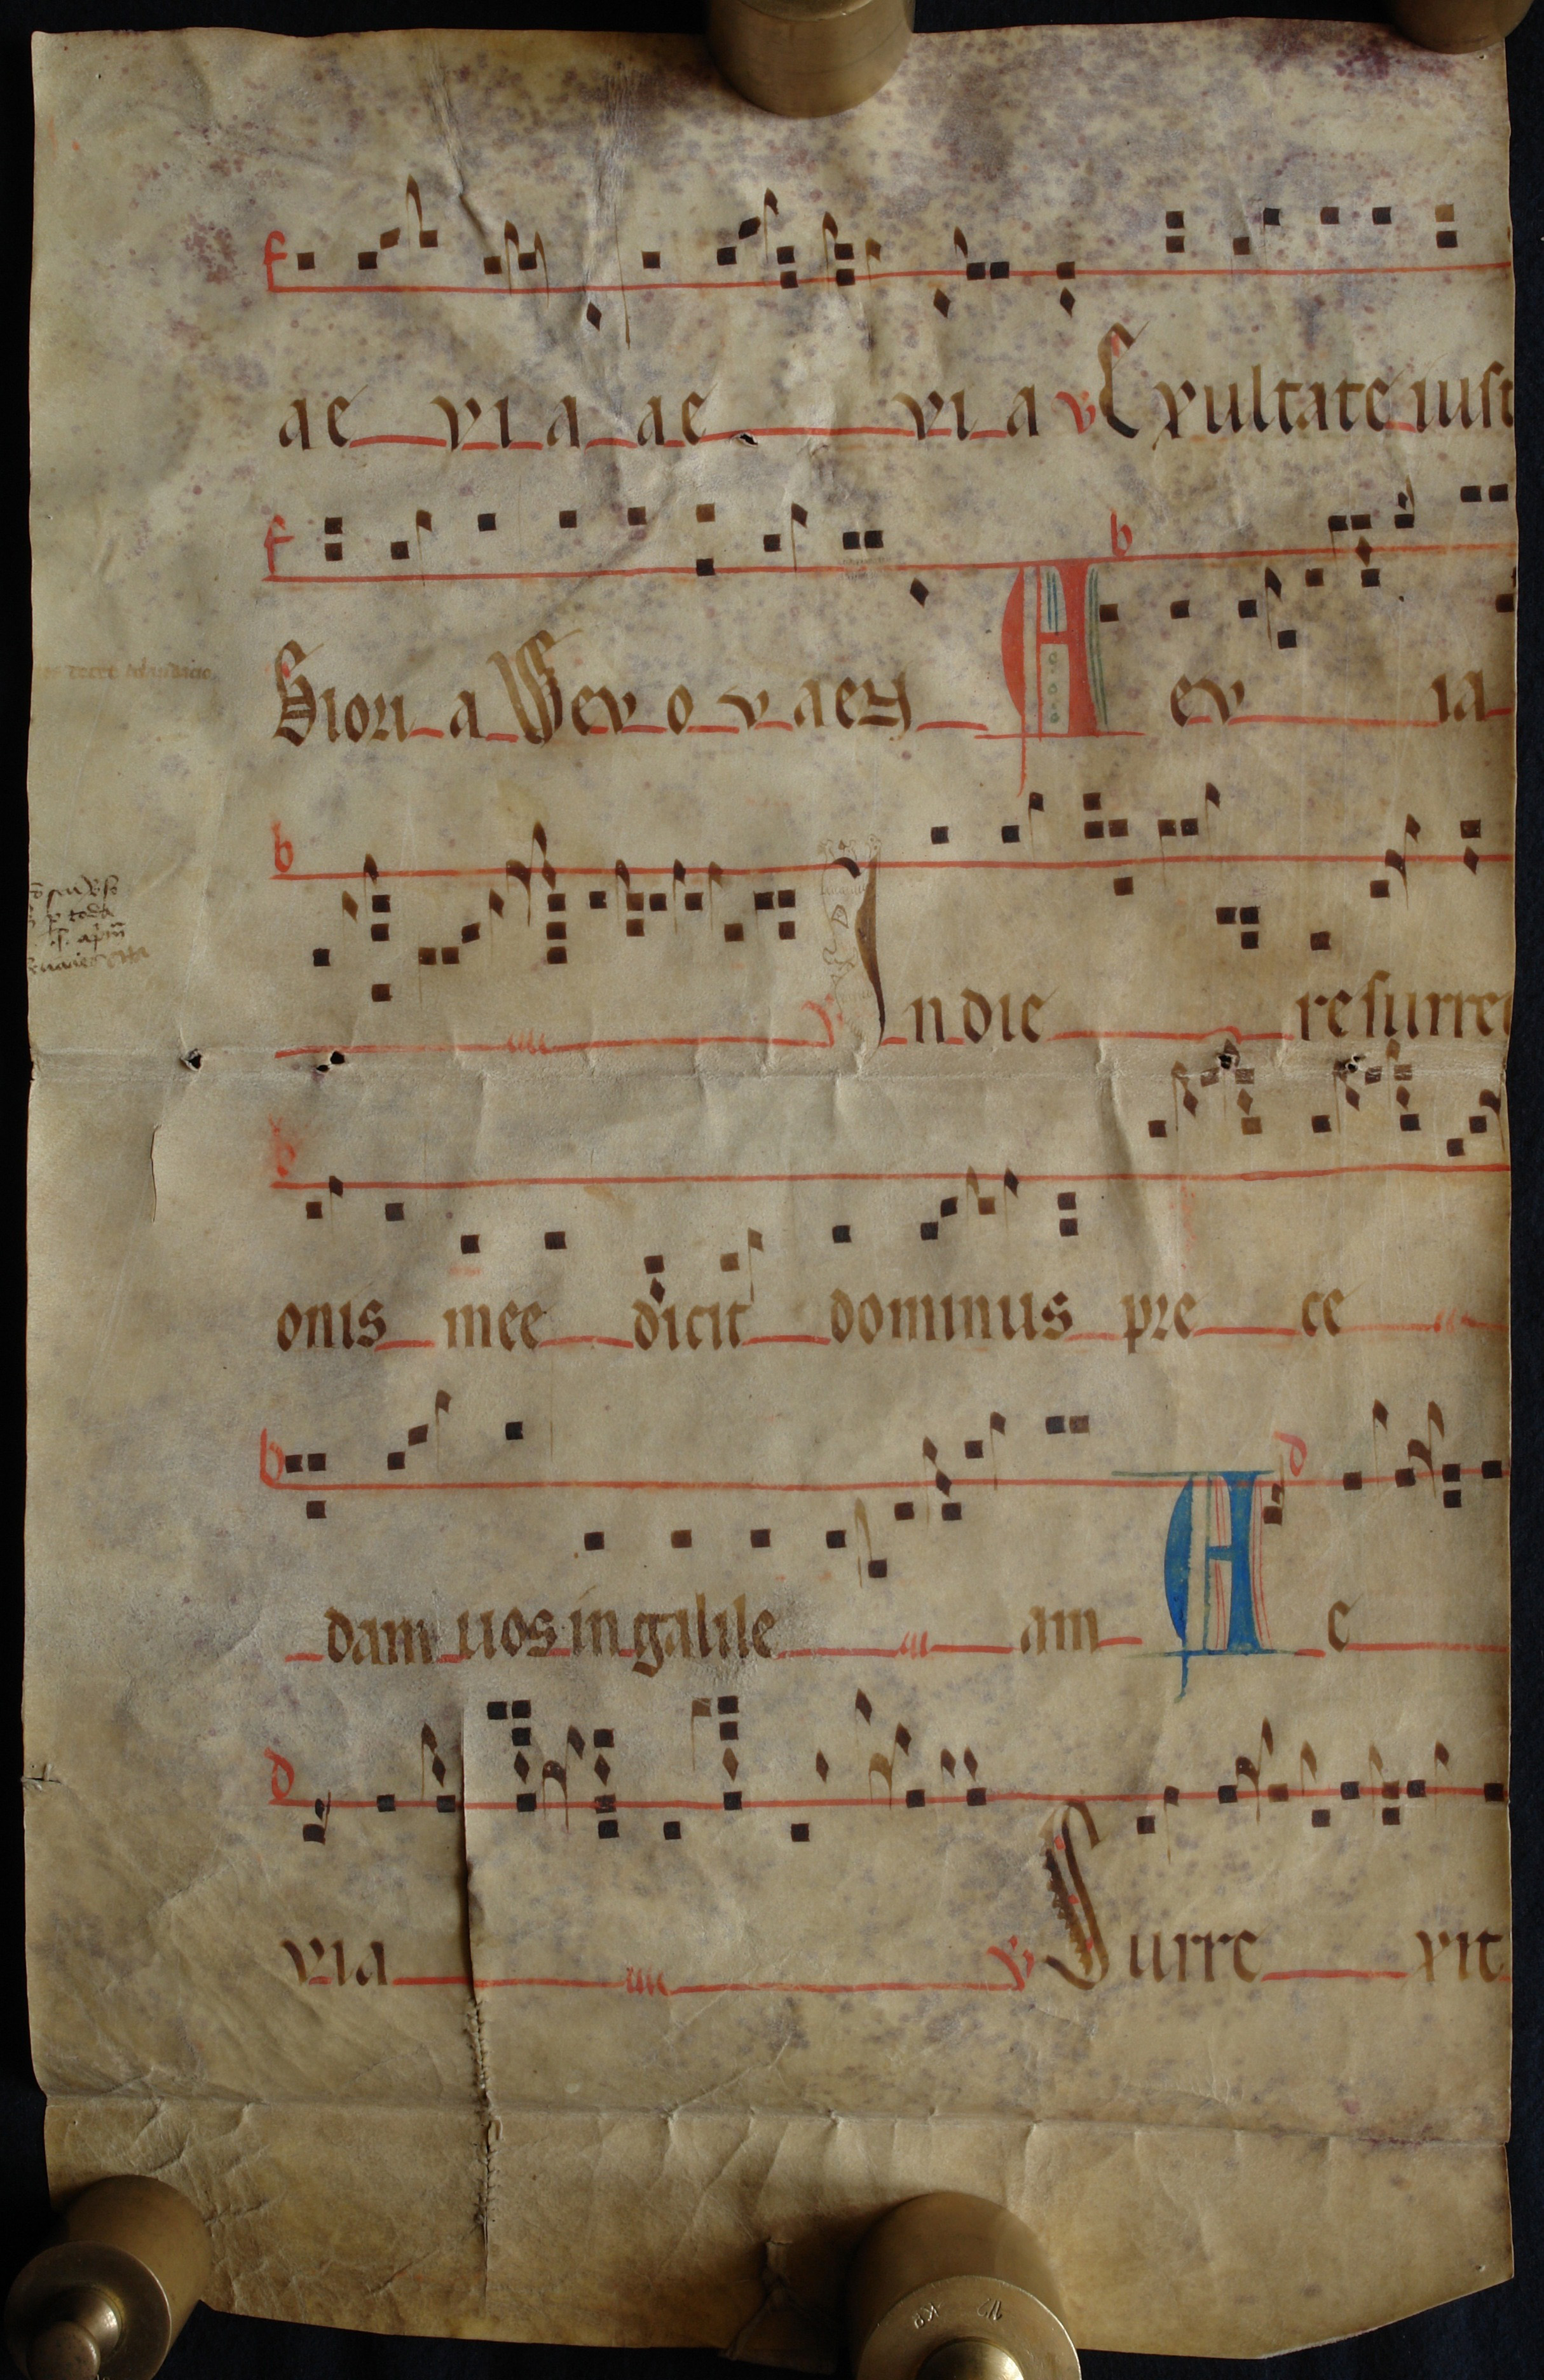 f
ae vi a ae vi a v Exultate iust
f b
Glori a Sev o v aeȝ A ev ia
b
v In die resurrei
b
onis mee dicit dominus pre ce
b d
dam uos in galile am A e
d
via v Surre xit